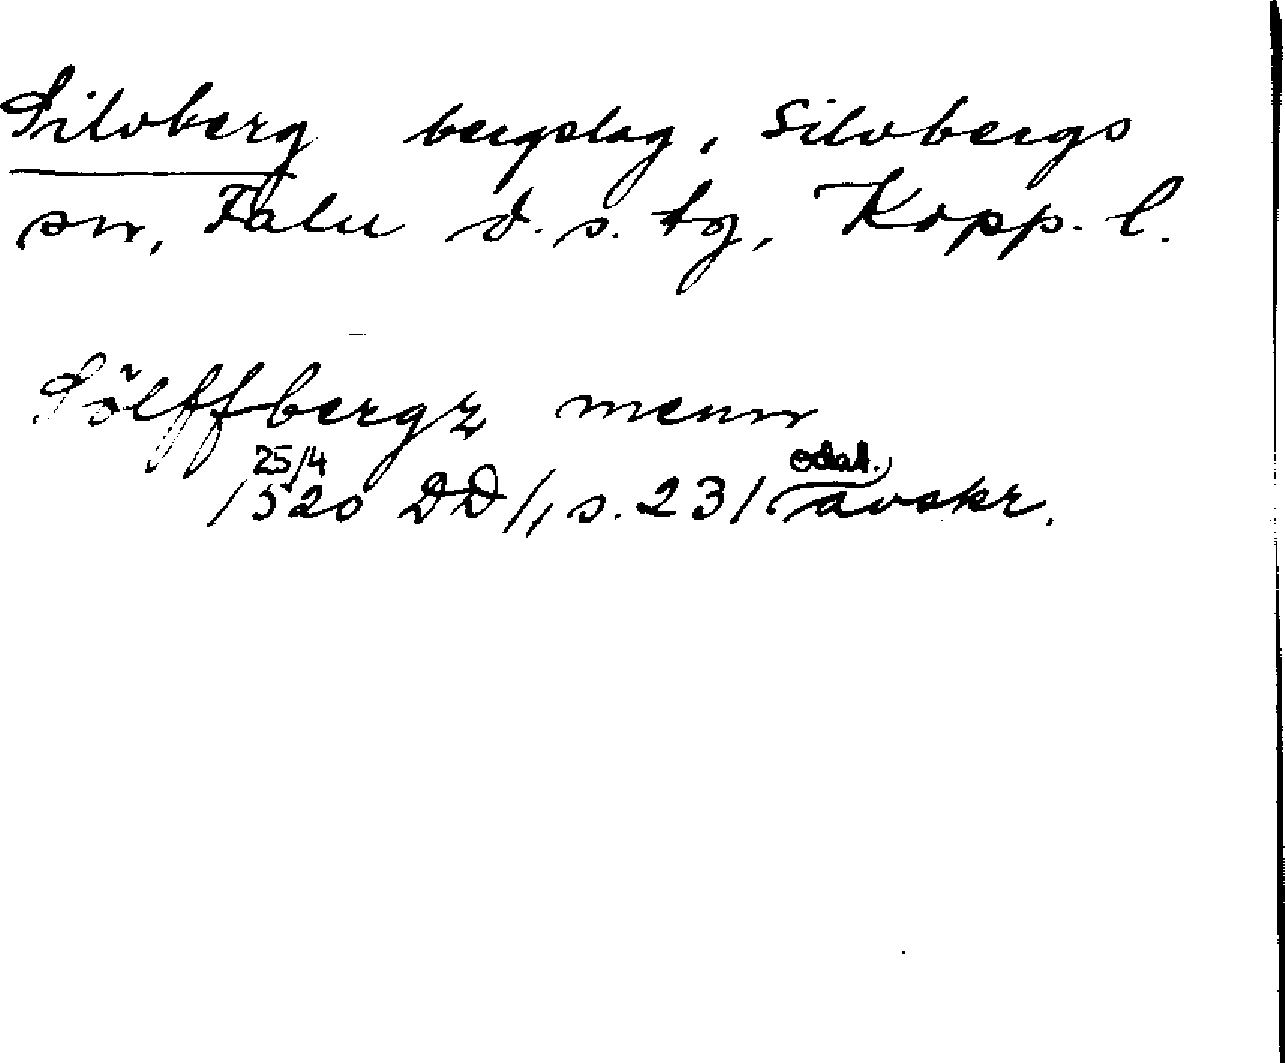 Silvberg bergslag, Silvbergs
sn, Falu d. s. tg, Kopp. l.
Sölffbergz menn
25/4
1520 DD/1, s. 231 odat. avskr.